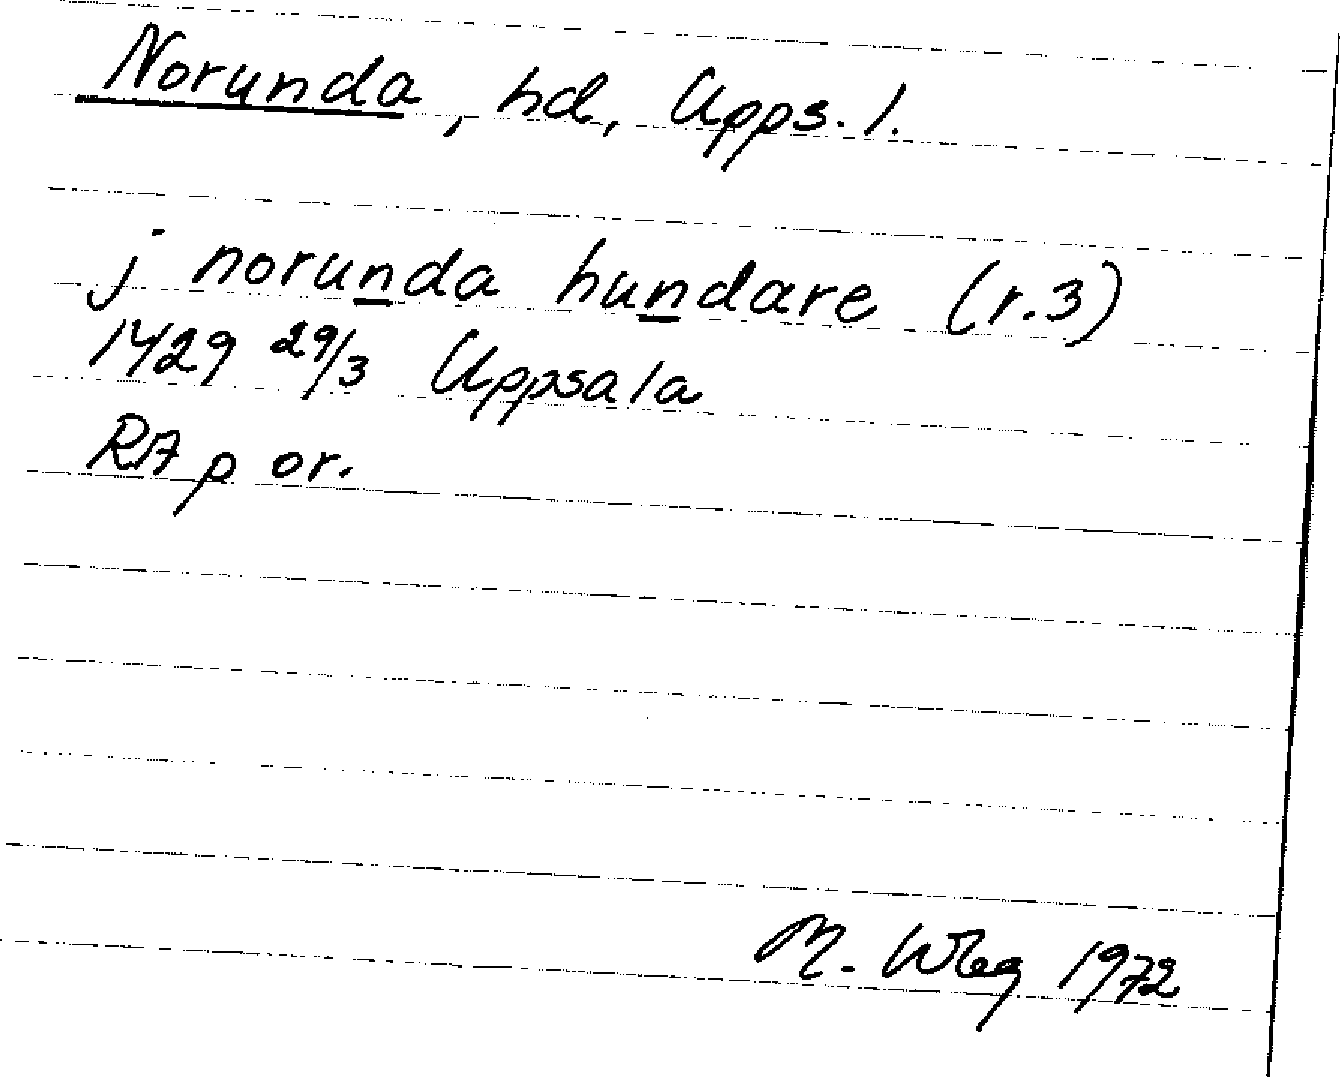 Norunda, hd, Upps. l.
j norunda hundare (r.3)
1429 29/3 Uppsala
RA p or.
M. Wbg 1972